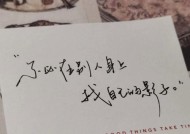 “不必在别人身上
找自己的影子。”
GOOD THINGS TAKE TIM